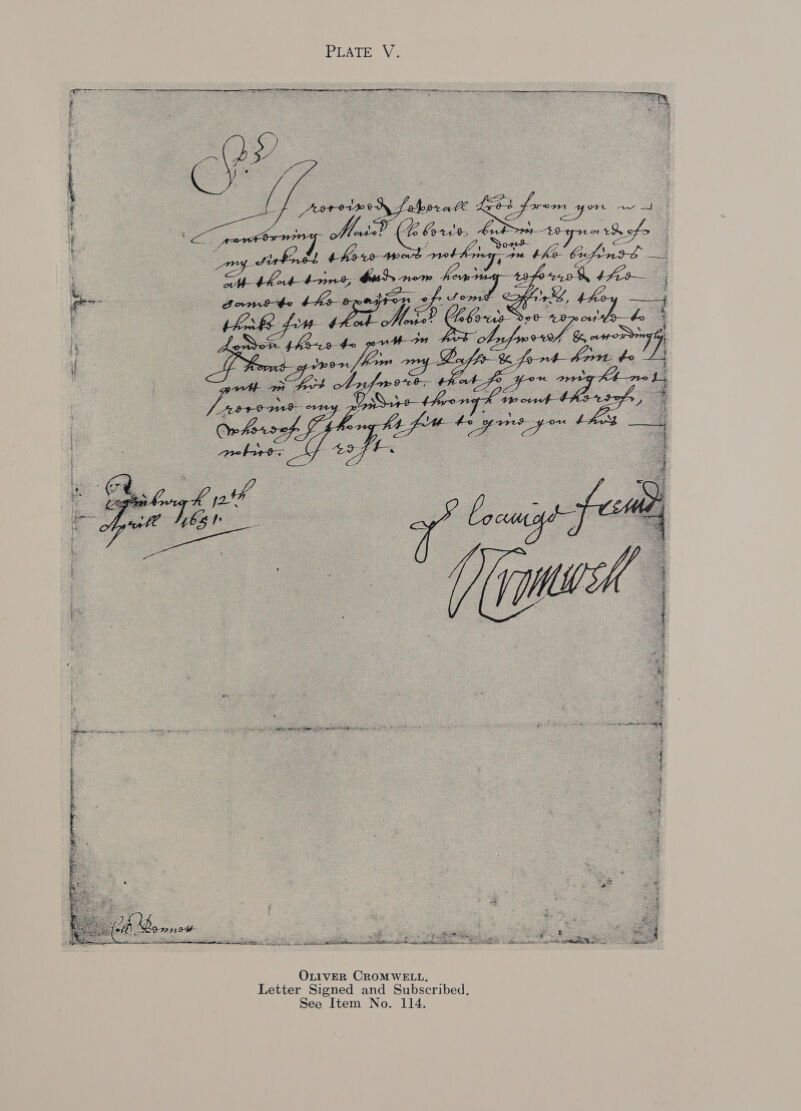 PLATE V.
Sr
I receiued seuerall Lres from you
concerning Maior but in reguard of
my sicknes there was nothing done in the businesse
att that time, And now hauing referred the
same to the of some Officers, they
thinke fitt that Maior doe repaire to
London there to putt in his Answere, & accordingly
I haue giuen him my Passe & sent him to
putt in his Answere, that so you might not
receiue any through want thereof,
Whereof I thought fitt to giue you this
notice. I rest.
Edinburgh 12th
Aprill 1651.
Yr louinge freind
O Cromwell
Coll Bennett
OLIVER CROMWELL.
Letter Signed and Subscribed.
See Item No. 114.